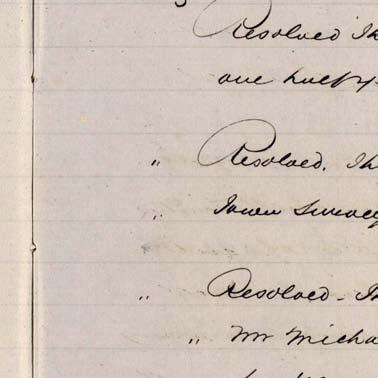 Resolved Th
one half y
" Resolved. Th
" Town Survey
" Resolved - Th
" Mr Micha